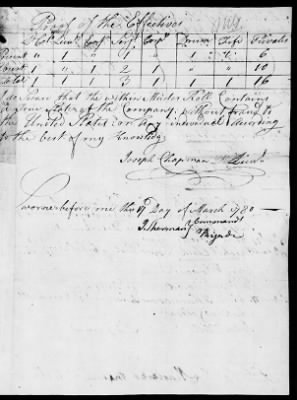 Proof of the Effectives
Lieut Ens Serj Corp Drum Fife Privates
Present " 1 1 1 1 6
Absent " 1 2 1 " " 10
Total 1 1 3 1 1 16
I do Swear that the within Muster Roll Contains
a true State of the Company, without fraud to
the United States or any individual According
to the best of my Knowledge
Joseph Chapman Lieut
Sworn before me this 19 Day of March 1780
I Sherman Command
Brigade